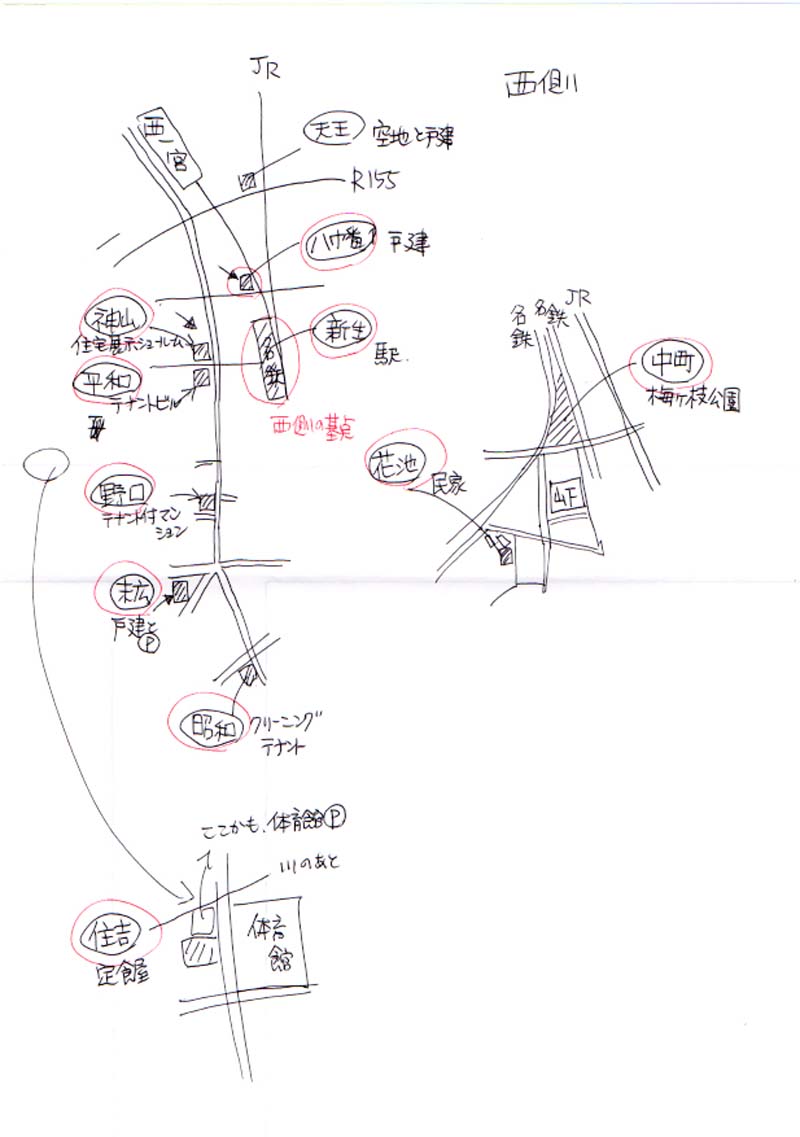 JR
西側
西一宮
天王 空地と戸建
R155
八幡 戸建
神山
住宅展示ショールーム
新生
駅.
名鉄
平和
テナントビル
西側の基点
野口
テナント付マン
ション
末広
戸建と
Ⓟ
昭和 クリーニング
テナント
名鉄
名鉄
JR
中町
梅ヶ枝公園
花池
民家
4F
ここかも、体育館Ⓟ
川のあと
住吉
定食屋
体育
館